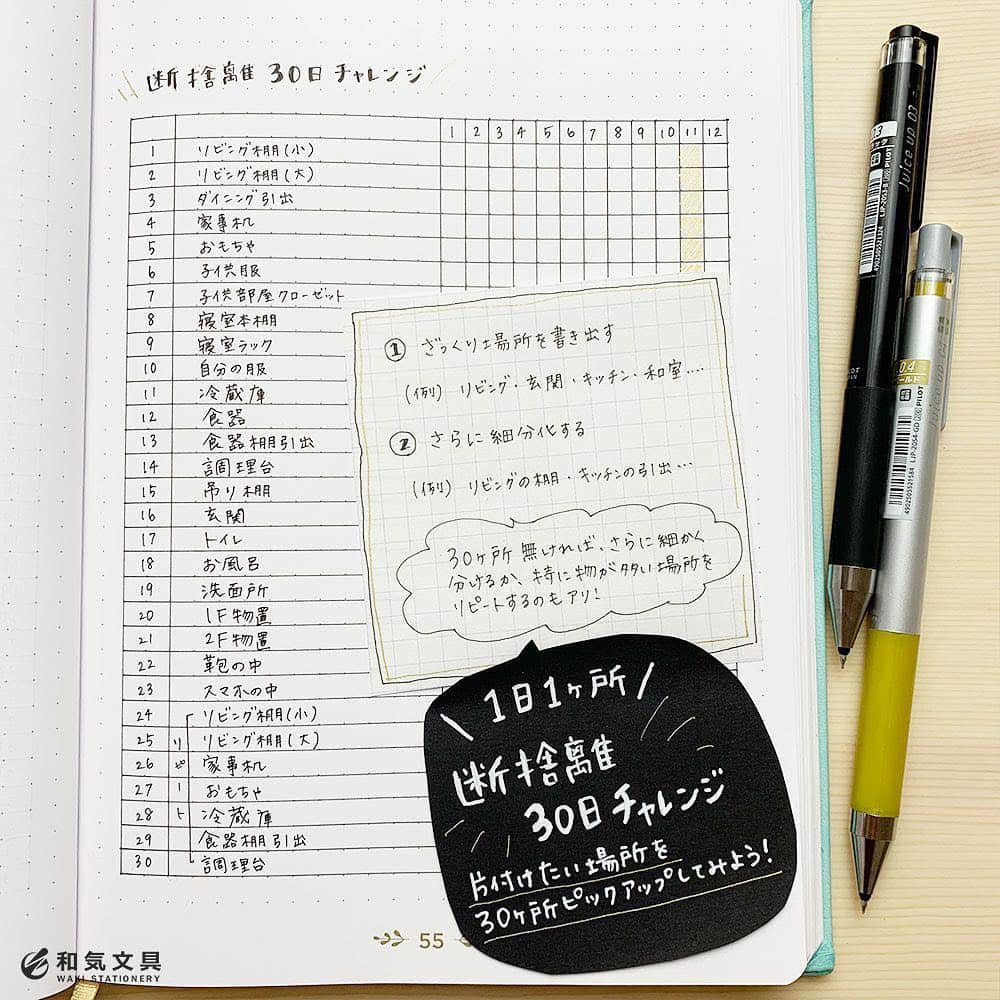 断捨離 30日チャレンジ
1 2 3 4 5 6 7 8 9 10 11 12
1 リビング棚(小)
2 リビング棚(大)
3 ダイニング引出
4 家事机
5 おもちゃ
6 子供服
7 子供部屋クローゼット
8 寝室本棚
9 寝室ラック
10 自分の服
11 冷蔵庫
12 食器
13 食器棚引出
14 調理台
15 吊り棚
16 玄関
17 トイレ
18 お風呂
19 洗面所
20 1F物置
21 2F物置
22 鞄の中
23 スマホの中
24 リビング棚(小)
25 リビング棚(大)
26 家事机
27 おもちゃ
28 冷蔵庫
29 食器棚引出
30 調理台
リピート
① ざっくり場所を書き出す
(例) リビング・玄関・キッチン・和室‥‥
② さらに細分化する
(例) リビングの棚・キッチンの引出…
30ヶ所 無ければ、さらに細かく
分けるか、特に物が多い場所を
リピートするのもアリ!
\ 1日1ヶ所 /
断捨離
30日チャレンジ
片付けたい場所を
30ヶ所ピックアップしてみよう!
55
和気文具
WAKI STATIONERY
Juice up 03
0.4
PILOT
LJP-20S4-GD
4902505521584